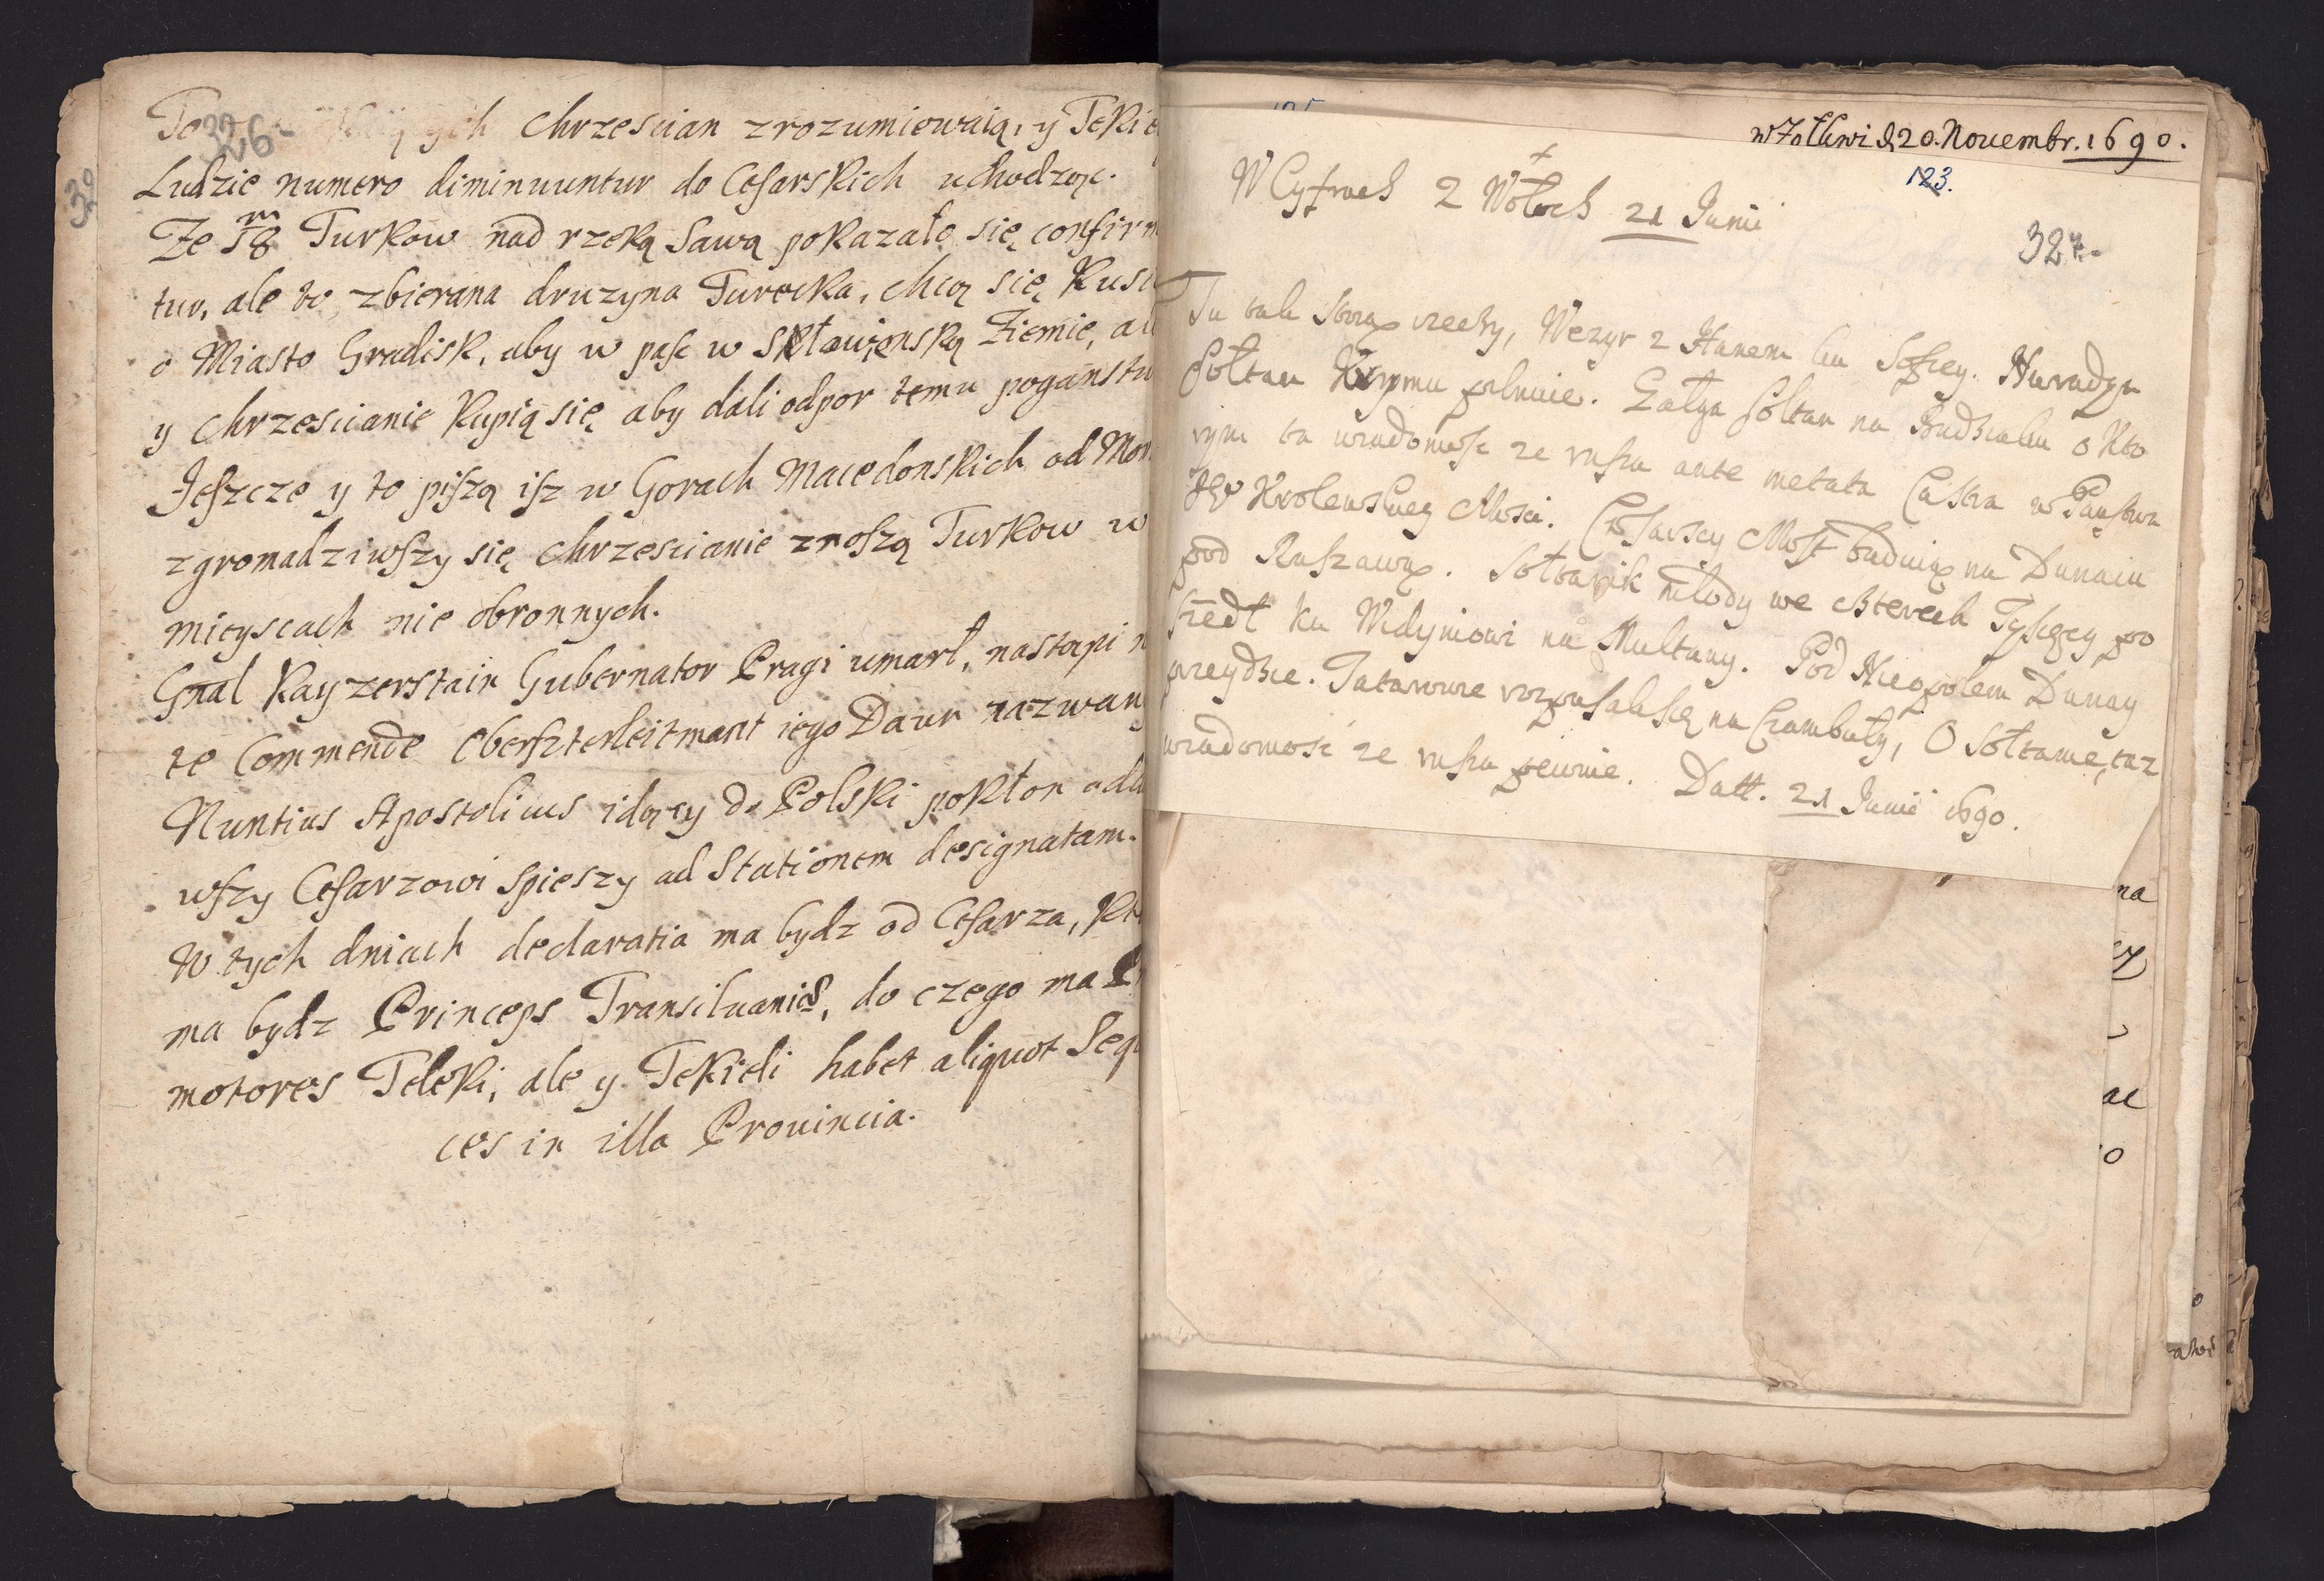 326.
30
chrzescian zrozumiewaią, y Teki
Ludzie numero diminuuntur do Cesarskich uchodząc.
Ze 18 m Turkow nad rzeką Sawą pokazało się, confirm
tur, ale to zbierana druzyna Turecka, chcą się Kusi
o Miasto Gradisk, aby w paść w Skławięnską Ziemie, al
y chrzescianie Kupią się aby dali odpor temu poganstw
Jeszcze y to piszą isz w Gorach Macedonskich od Mon
zgromadziwszy się chrzescianie znoszą Turkow w
mieyscach nie obronnych.
Gnal Kayzerstain Gubernator Pragi umarł, nastąpi n
te Commende Obersterleitmant iego Daun nazwan
Nuntius Apostolicus idący do Polski pokłon odda
wszy Cesarzowi spieszy ad Stationem designatam.
W tych dniach declaratia ma bydz od Cesarza, Kt
ma bydz Princeps Transiluaniæ, do czego ma P
motores Teleki, ale y Tekieli habet aliquot Sequ
ces in illa Prouincia.
w Zołkwi d 20. Nouembr. 1690.
123.
W Cyfrach z Wołoch 21 Junii
327.
Tu tak stoią rzeczy, Wezyr z Hanem ku Sofiey. Nuradyn
Sołtan Krymu pilnuie. Gałga sołtan na Budziaku o Kto
rym ta wiadomosc ze rusza ante metata Castra w Panstwa
JKr Krolewskiey Mosci. Cesarscy Most buduią na Dunaiu
pod Ruszawą. Sołtanik młody we czterech Tysięcy po
szedł ku Widyniowi na Multany. Pod Niegpolem Dunay
przeydzie. Tatarowie rozpuscili się na Czambuły, O sołtanie, taz
wiadomosć ze rusza pewnie. Datt. 21 Junii 1690.
na
ac
o